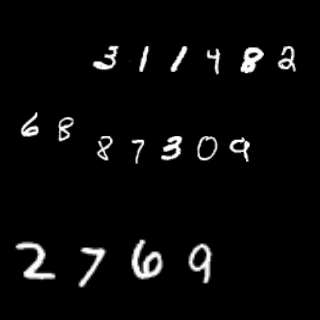 311482
68
87309
2769